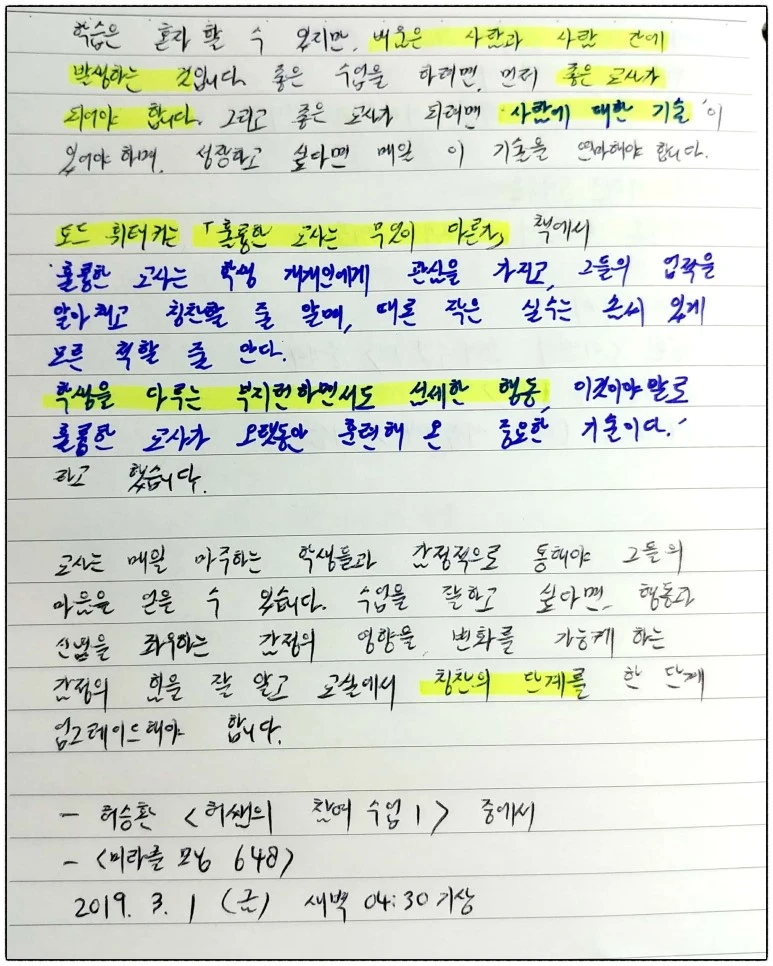 학습은 혼자 할 수 있지만, 배움은 사람과 사람 간에
발생하는 것입니다. 좋은 수업을 하려면, 먼저 좋은 교사가
되어야 합니다. 그리고 좋은 교사가 되려면 '사람에 대한 기술'이
있어야 하며, 성장하고 싶다면 매일 이 기술을 연마해야 합니다.
토드 휘태커는 「훌륭한 교사는 무엇이 다른가」 책에서
'훌륭한 교사는 학생 개개인에게 관심을 가지고, 그들의 업적을
알아채고 칭찬할 줄 알며, 때론 작은 실수는 솜씨 있게
모른 척할 줄 안다.
학생을 다루는 부지런하면서도 섬세한 행동, 이것이야말로
훌륭한 교사가 오랫동안 훈련해 온 중요한 기술이다.'
하고 했습니다.
교사는 매일 마주하는 학생들과 감정적으로 통해야 그들의
마음을 얻을 수 있습니다. 수업을 잘하고 싶다면, 행동과
신념을 좌우하는 감정의 영향을, 변화를 가능케 하는
감정의 힘을 잘 알고 교실에서 칭찬의 단계를 한 단계
업그레이드해야 합니다.
- 허승환 <허쌤의 참여 수업 1> 중에서
- <미라클 모닝 648>
2019. 3. 1 (금) 새벽 04:30 기상